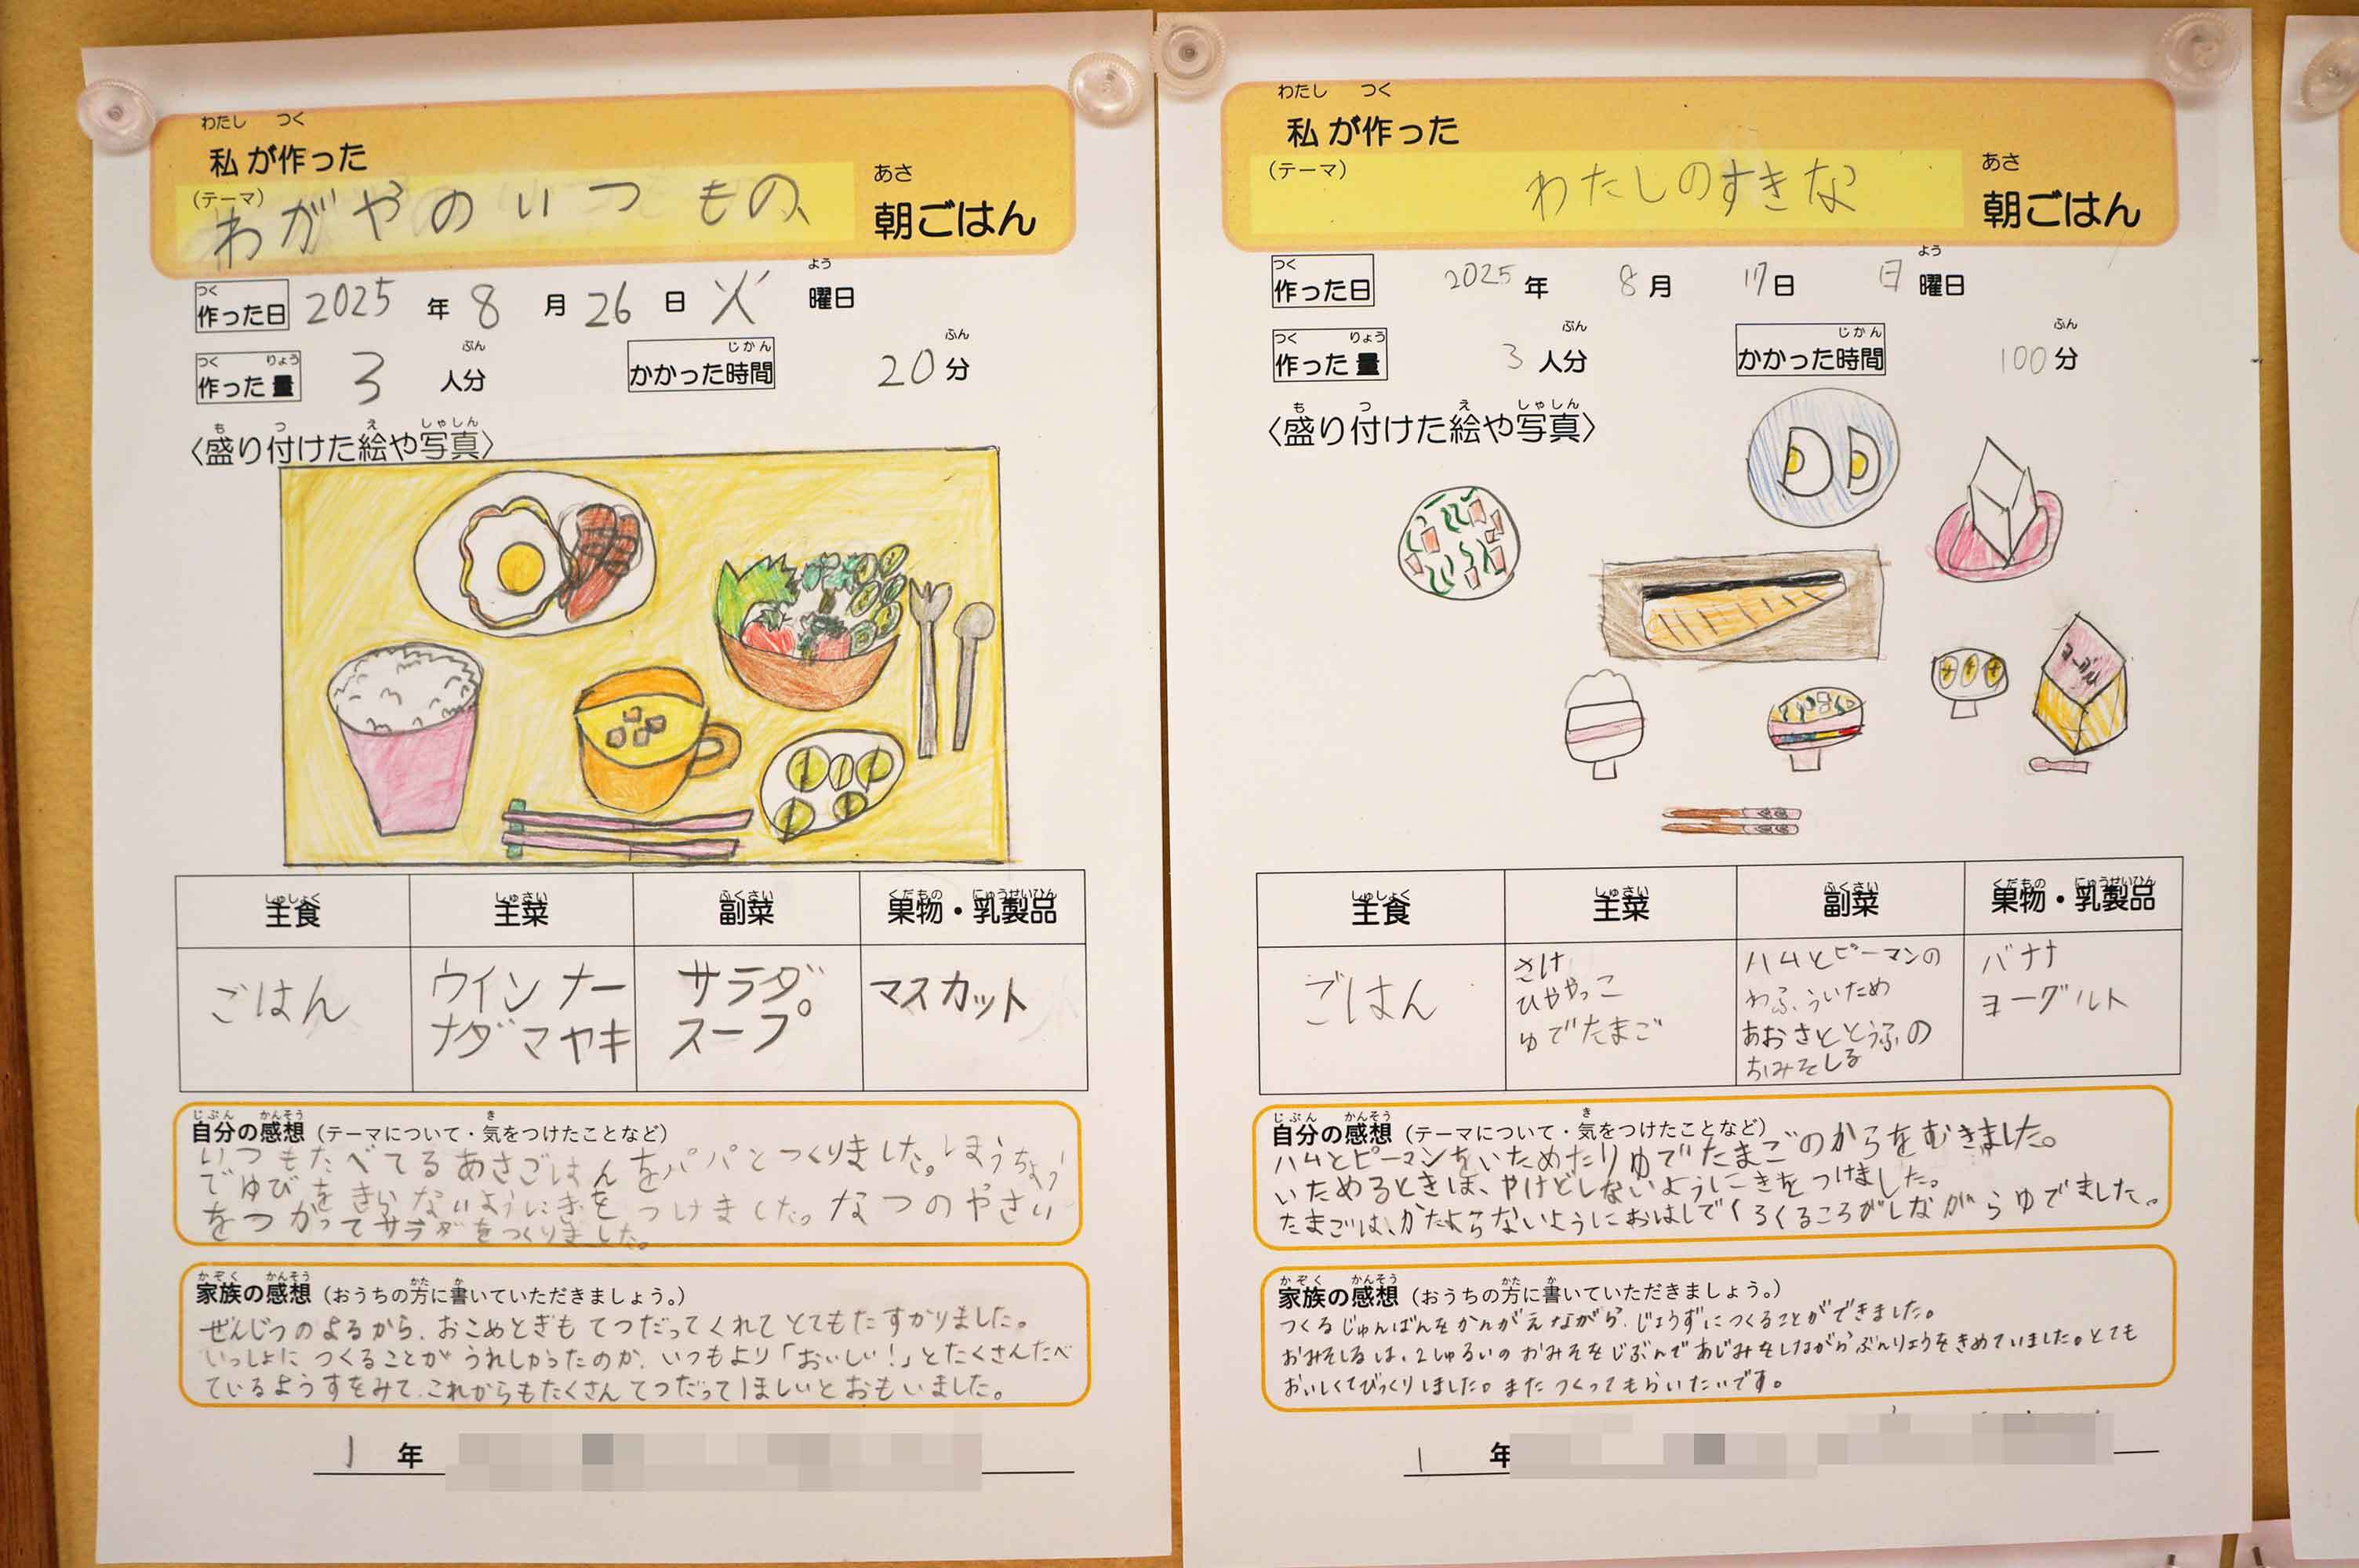 わたし つく
私が作った
(テーマ)
わがやのいつもの、
あさ
朝ごはん
つく
作った日 2025 年 8 月 26 日 火 曜日
よう
つく りょう
作った量 3 人分
ぶん
じかん
かかった時間 20 分
ふん
も つ え しゃしん
〈盛り付けた絵や写真〉
しゅしょく しゅさい ふくさい くだもの にゅうせいひん
主食 主菜 副菜 果物・乳製品
ごはん
ウインナー
ナダマヤキ
サラダ。
スープ
マスカット
じぶん かんそう き
自分の感想(テーマについて・気をつけたことなど)
いつもたべてるあさごはんをパパとつくりました。ほうちょう
でゆびをきらないようにきをつけました。なつのやさい
をつかってサラダをつくりました。
かぞく かんそう かた か
家族の感想(おうちの方に書いていただきましょう。)
ぜんじつのよるから、おこめとぎもてつだってくれてとてもたすかりました。
いっしょにつくることがうれしかったのか、いつもより「おいしい!」とたくさんたべ
ているようすをみて、これからもたくさんてつだってほしいとおもいました。
1 年
わたし つく
私が作った
(テーマ)
わたしのすきな
あさ
朝ごはん
つく
作った日 2025 年 8 月 17 日 日 曜日
よう
つく りょう
作った量 3 人分
ぶん
じかん
かかった時間 100 分
ふん
も つ え しゃしん
〈盛り付けた絵や写真〉
ヨーグルト
しゅしょく しゅさい ふくさい くだもの にゅうせいひん
主食 主菜 副菜 果物・乳製品
ごはん
さけ
ひややっこ
ゆでたまご
ハムとピーマンの
わふういため
あおさととうふの
おみそしる
バナナ
ヨーグルト
じぶん かんそう き
自分の感想(テーマについて・気をつけたことなど)
ハムとピーマンをいためたりゆでたまごのからをむきました。
いためるときは、やけどしないようにきをつけました。
たまごは、かたよらないようにおはしでくるくるころがしながらゆでました。
かぞく かんそう かた か
家族の感想(おうちの方に書いていただきましょう。)
つくるじゅんばんをかんがえながら、じょうずにつくることができました。
おみそしるは、2しゅるいのおみそをじぶんであじみをしながらぶんりょうをきめていました。とても
おいしくてびっくりしました。またつくってもらいたいです。
1 年